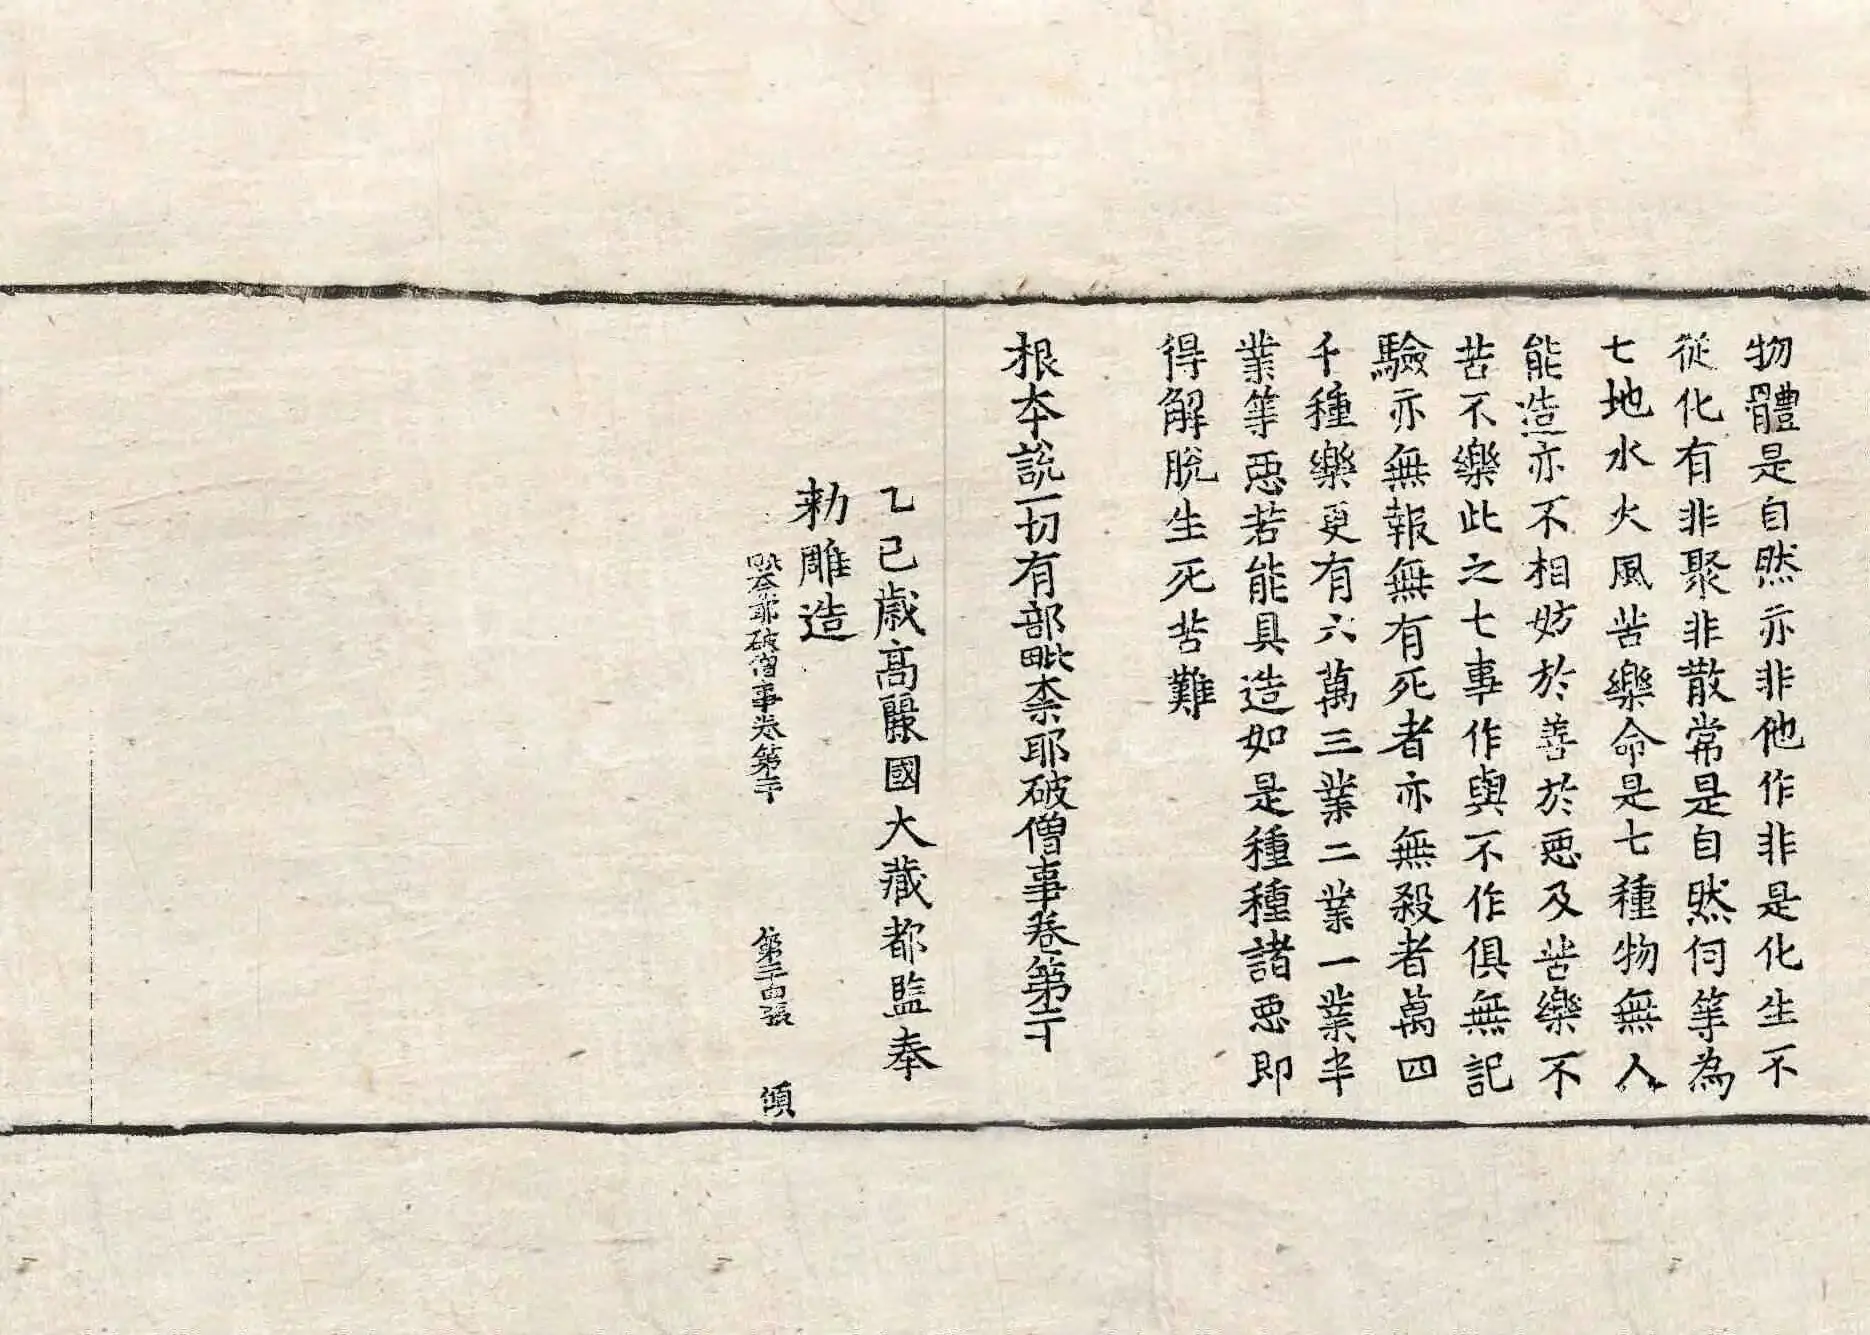 物體是自然亦非他作非是化生不
從化有非聚非散常是自然何等為
七地水火風苦樂命是七種物無人
能造亦不相妨於善於惡及苦樂不
苦不樂此之七事作與不作俱無記
驗亦無報無有死者亦無殺者萬四
千種樂更有六萬三業二業一業半
業等惡若能具造如是種種諸惡即
得解脫生死苦難
根本說一切有部毗柰耶破僧事卷第二十
乙巳歲高麗國大藏都監奉
勑雕造
毗柰耶破僧事卷第二十 第二十四張 傾